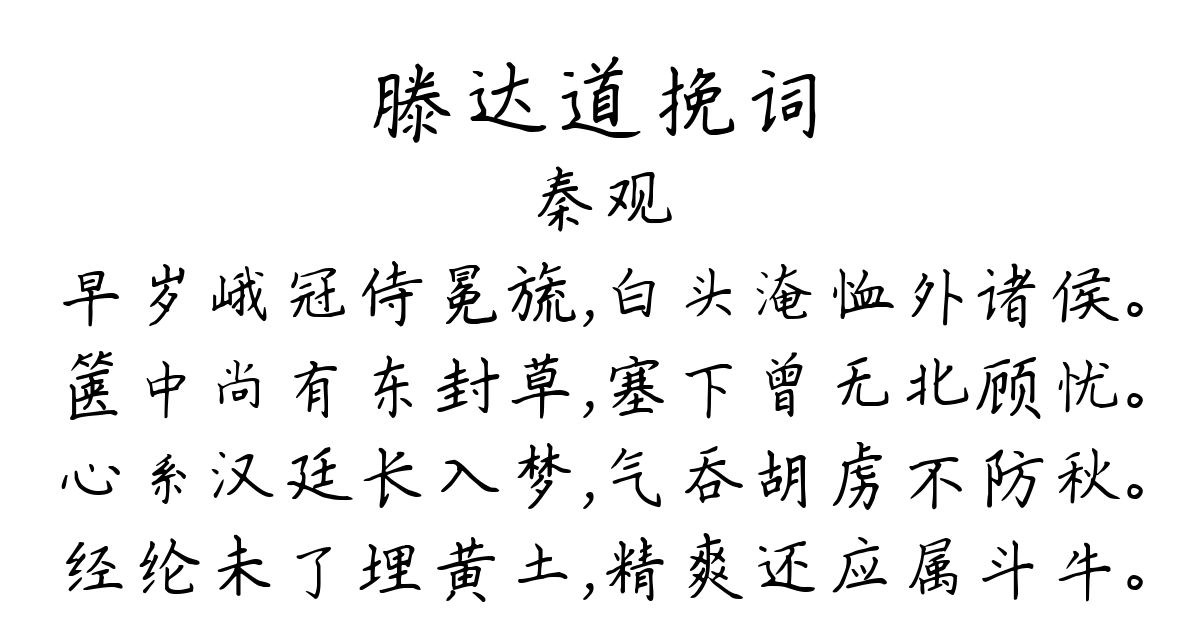 滕达道挽词
秦观
早岁峨冠侍冕旒,白头淹恤外诸侯。
箧中尚有东封草,塞下曾无北顾忧。
心系汉廷长入梦,气吞胡虏不防秋。
经纶未了埋黄土,精爽还应属斗牛。